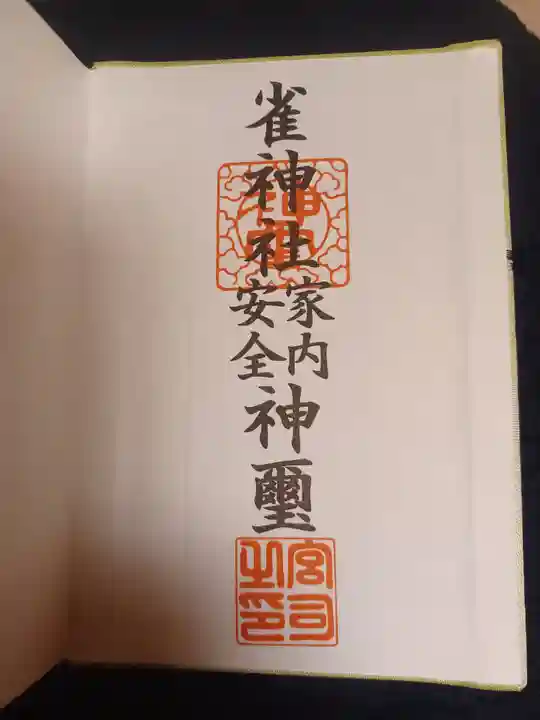 雀神社
家内
安全
神璽
神璽
宮司
之印